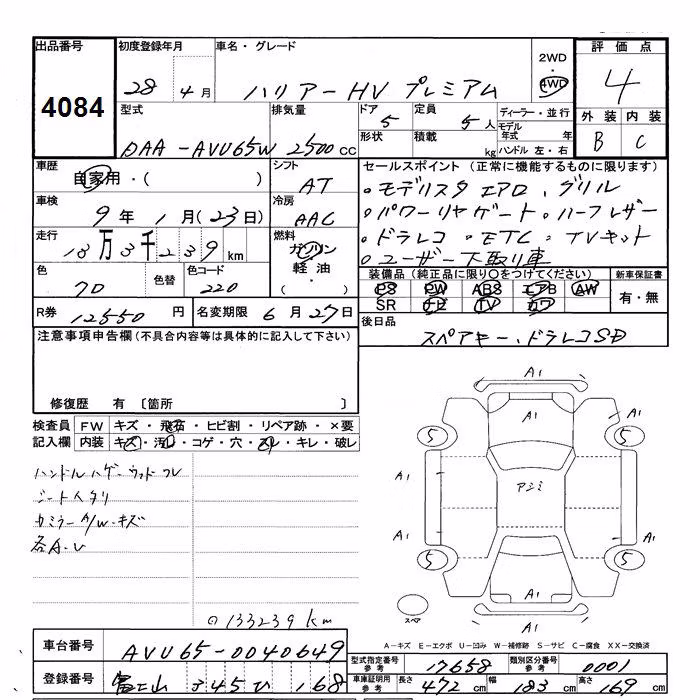 出品番号 初度登録年月 車名・グレード 2WD 4WD 評価点
4084 28年 4月 ハリアーHV プレミアム 4
型式 排気量 ドア 5 定員 5人 ディーラー・並行 外装 内装
DAA-AVU65W 2500cc 形状 積載 kg モデル年式 年 ハンドル 左・右 B C
車歴 自家用・( ) シフト AT セールスポイント (正常に機能するものに限ります)
・モデリスタエアロ、グリル
車検 9年 1月(23日) 冷房 AAC ・パワーリヤゲート・ハーフレザー
走行 13万3千239km 燃料 ガソリン 軽油 ・( ) ・ドラレコ・ETC・TVキット
・ユーザー下取り車
色 070 色替 色コード 220 装備品 (純正品に限り○をつけてください) 新車保証書
PS PW ABS エアB AW 有・無
SR ナビ TV カワ
R券 12550円 名変期限 6月27日 後日品 スペアキー、ドラレコSD
注意事項申告欄 (不具合内容等は具体的に記入して下さい)
修復歴 有 〔箇所 〕
検査員記入欄 FW キズ・飛石・ヒビ割・リペア跡・×要
内装 キズ・汚れ・コゲ・穴・スレ・キレ・破レ
ハンドルハゲ・ウッドスレ
シートヘタリ
カミラーA/W・キズ
各A・U
⊙133239km
A1
A1
5 5
アジミ
A1 A1
5 5
A1
A1
スペア
A-キズ E-エクボ U-凹み W-補修跡 S-サビ C-腐食 XX-交換済
車台番号 AVU65-0040649
型式指定番号 参考 17658 類別区分番号 参考 0001
登録番号 富士山 345 ひ 168
車庫証明用 参考 長さ 472cm 幅 183cm 高さ 169cm